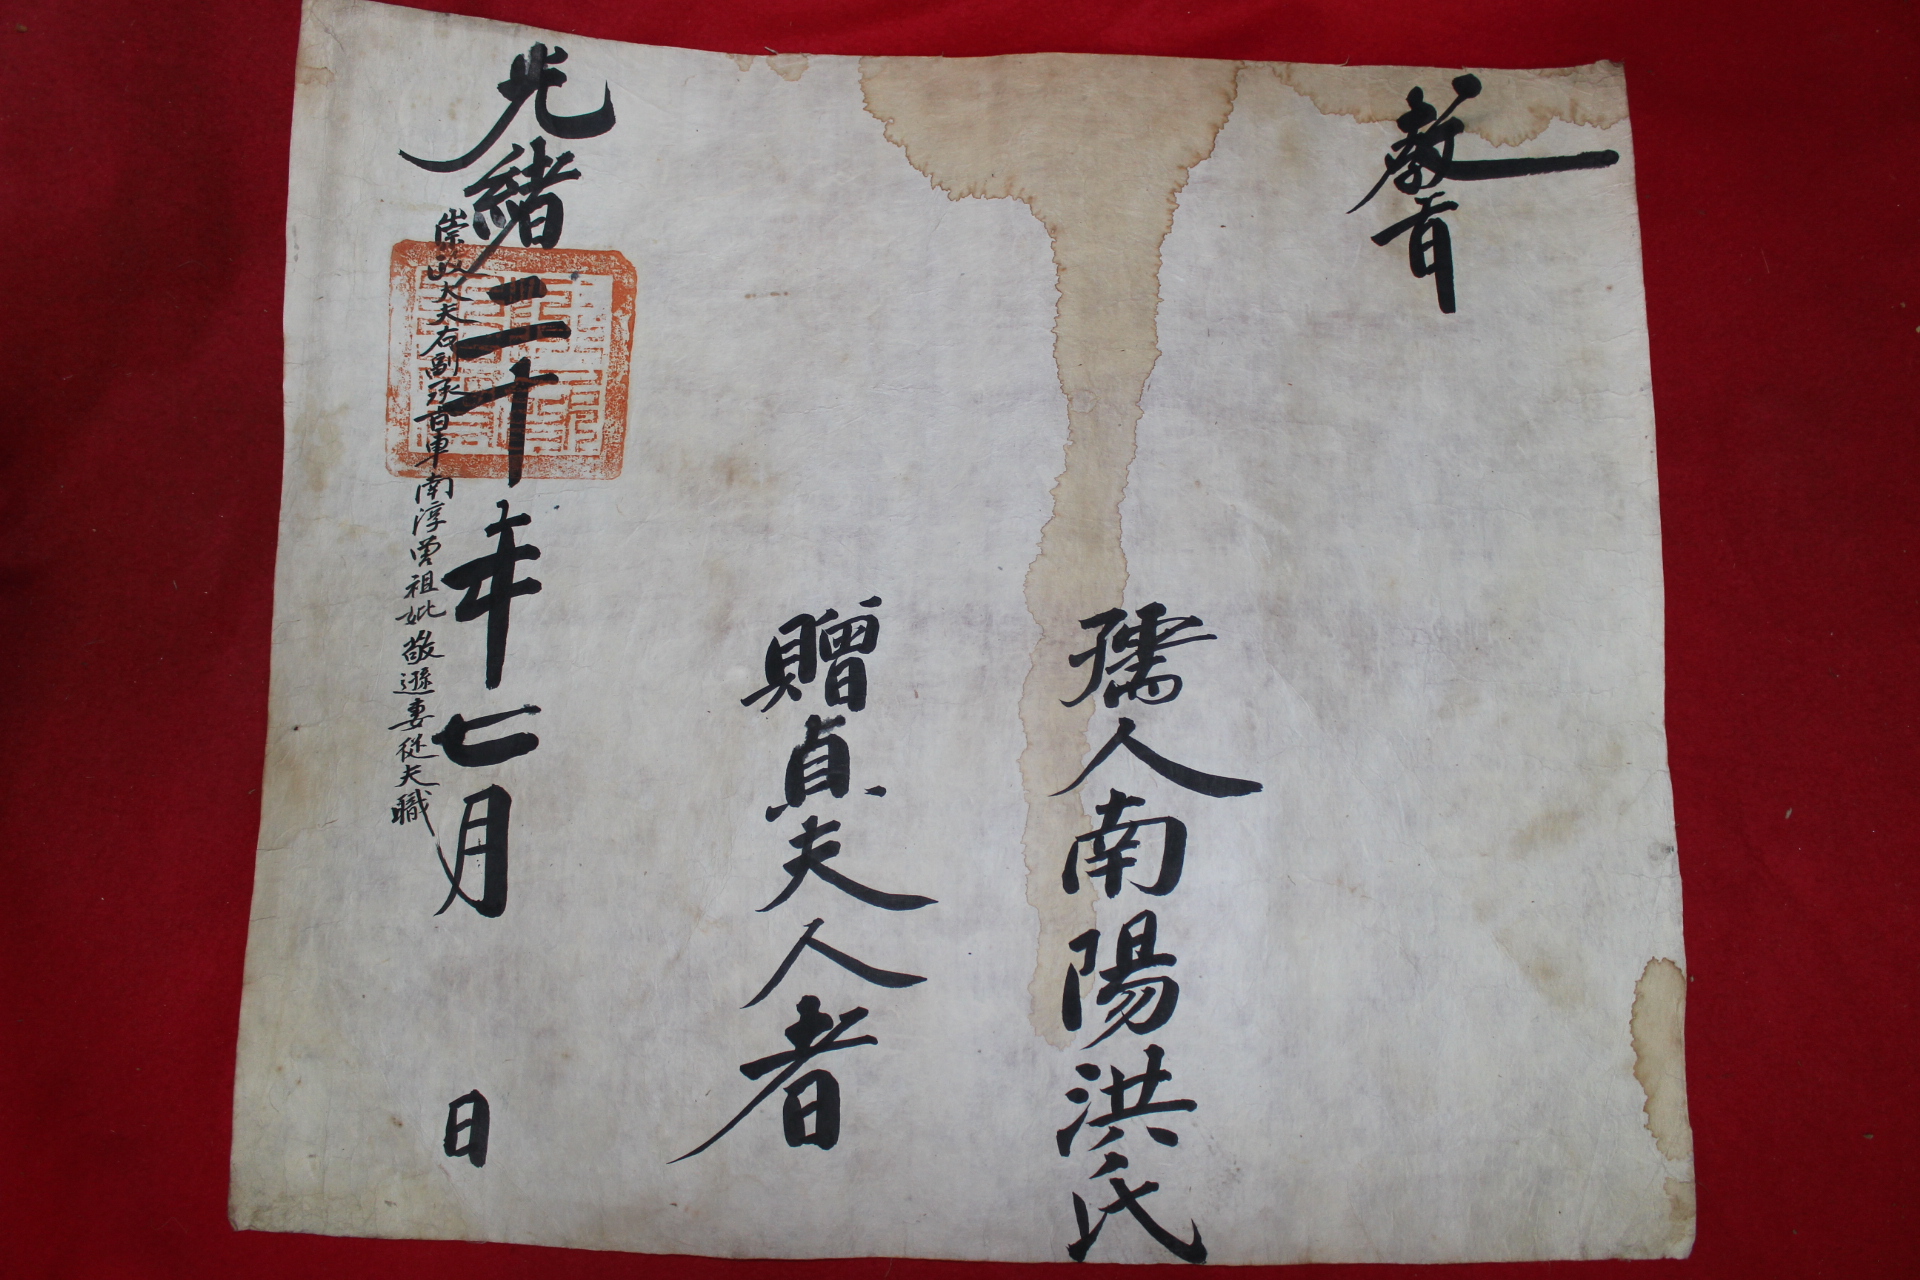 教旨
孺人南陽洪氏
贈貞夫人者
光緒二十年七月 日
崇政大夫右副承旨車南淳曾祖妣敬遜妻從夫職